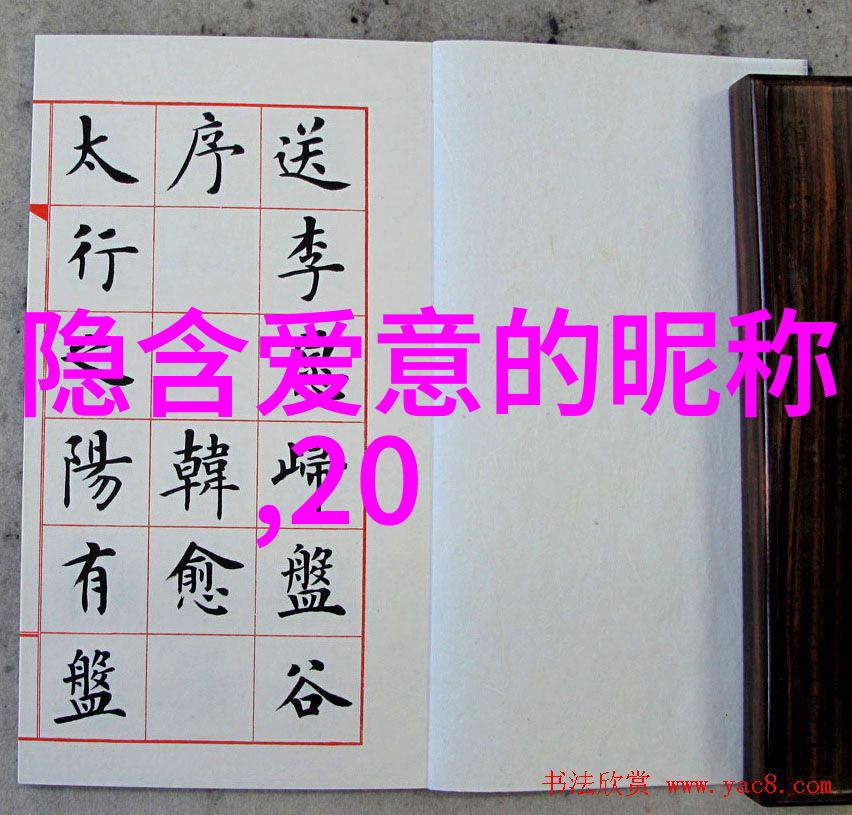 送李愿歸盤谷
序 韓愈
太行之陽有盤
隐含爱意的昵称
,20
书法欣赏 www.yac8.com